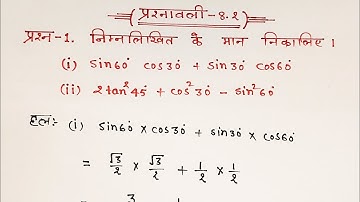 (प्रश्नावली-8.2)
प्रश्न-1. निम्नलिखित के मान निकालिए।
(i) sin60° cos30° + sin30° cos60°
(ii) 2tan²45° + cos²30° - sin²60°
हल:- (i) sin60° × cos30° + sin30° × cos60°
= √3/2 × √3/2 + 1/2 × 1/2
3 1